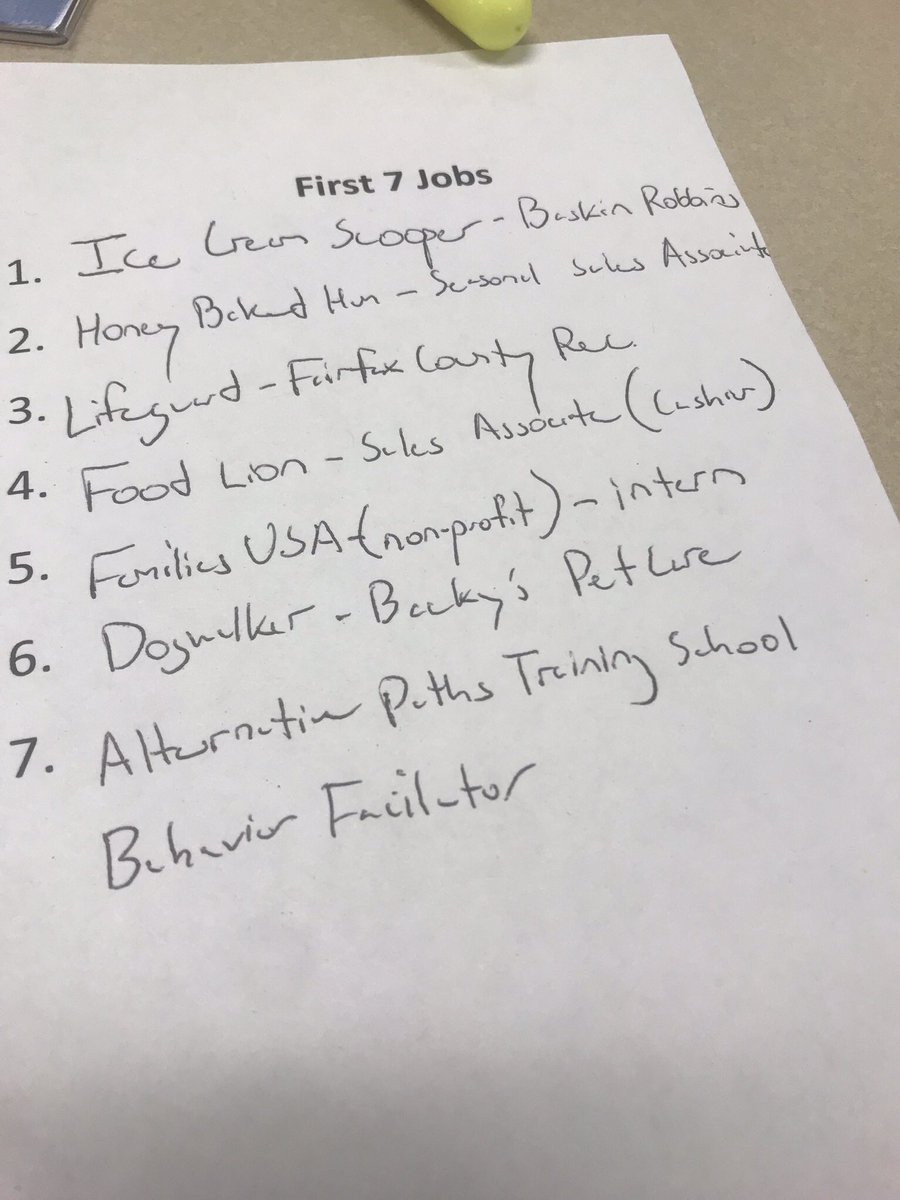 First 7 Jobs
1. Ice Cream Scooper - Baskin Robbins
2. Honey Baked Ham - Seasonal Sales Associate
3. Lifeguard - Fairfax County Rec.
4. Food Lion - Sales Associate (Cashier)
5. Families USA - (non-profit) - intern
6. Dogwalker - Becky's PetCare
7. Alternative Paths Training School
Behavior Facilitator